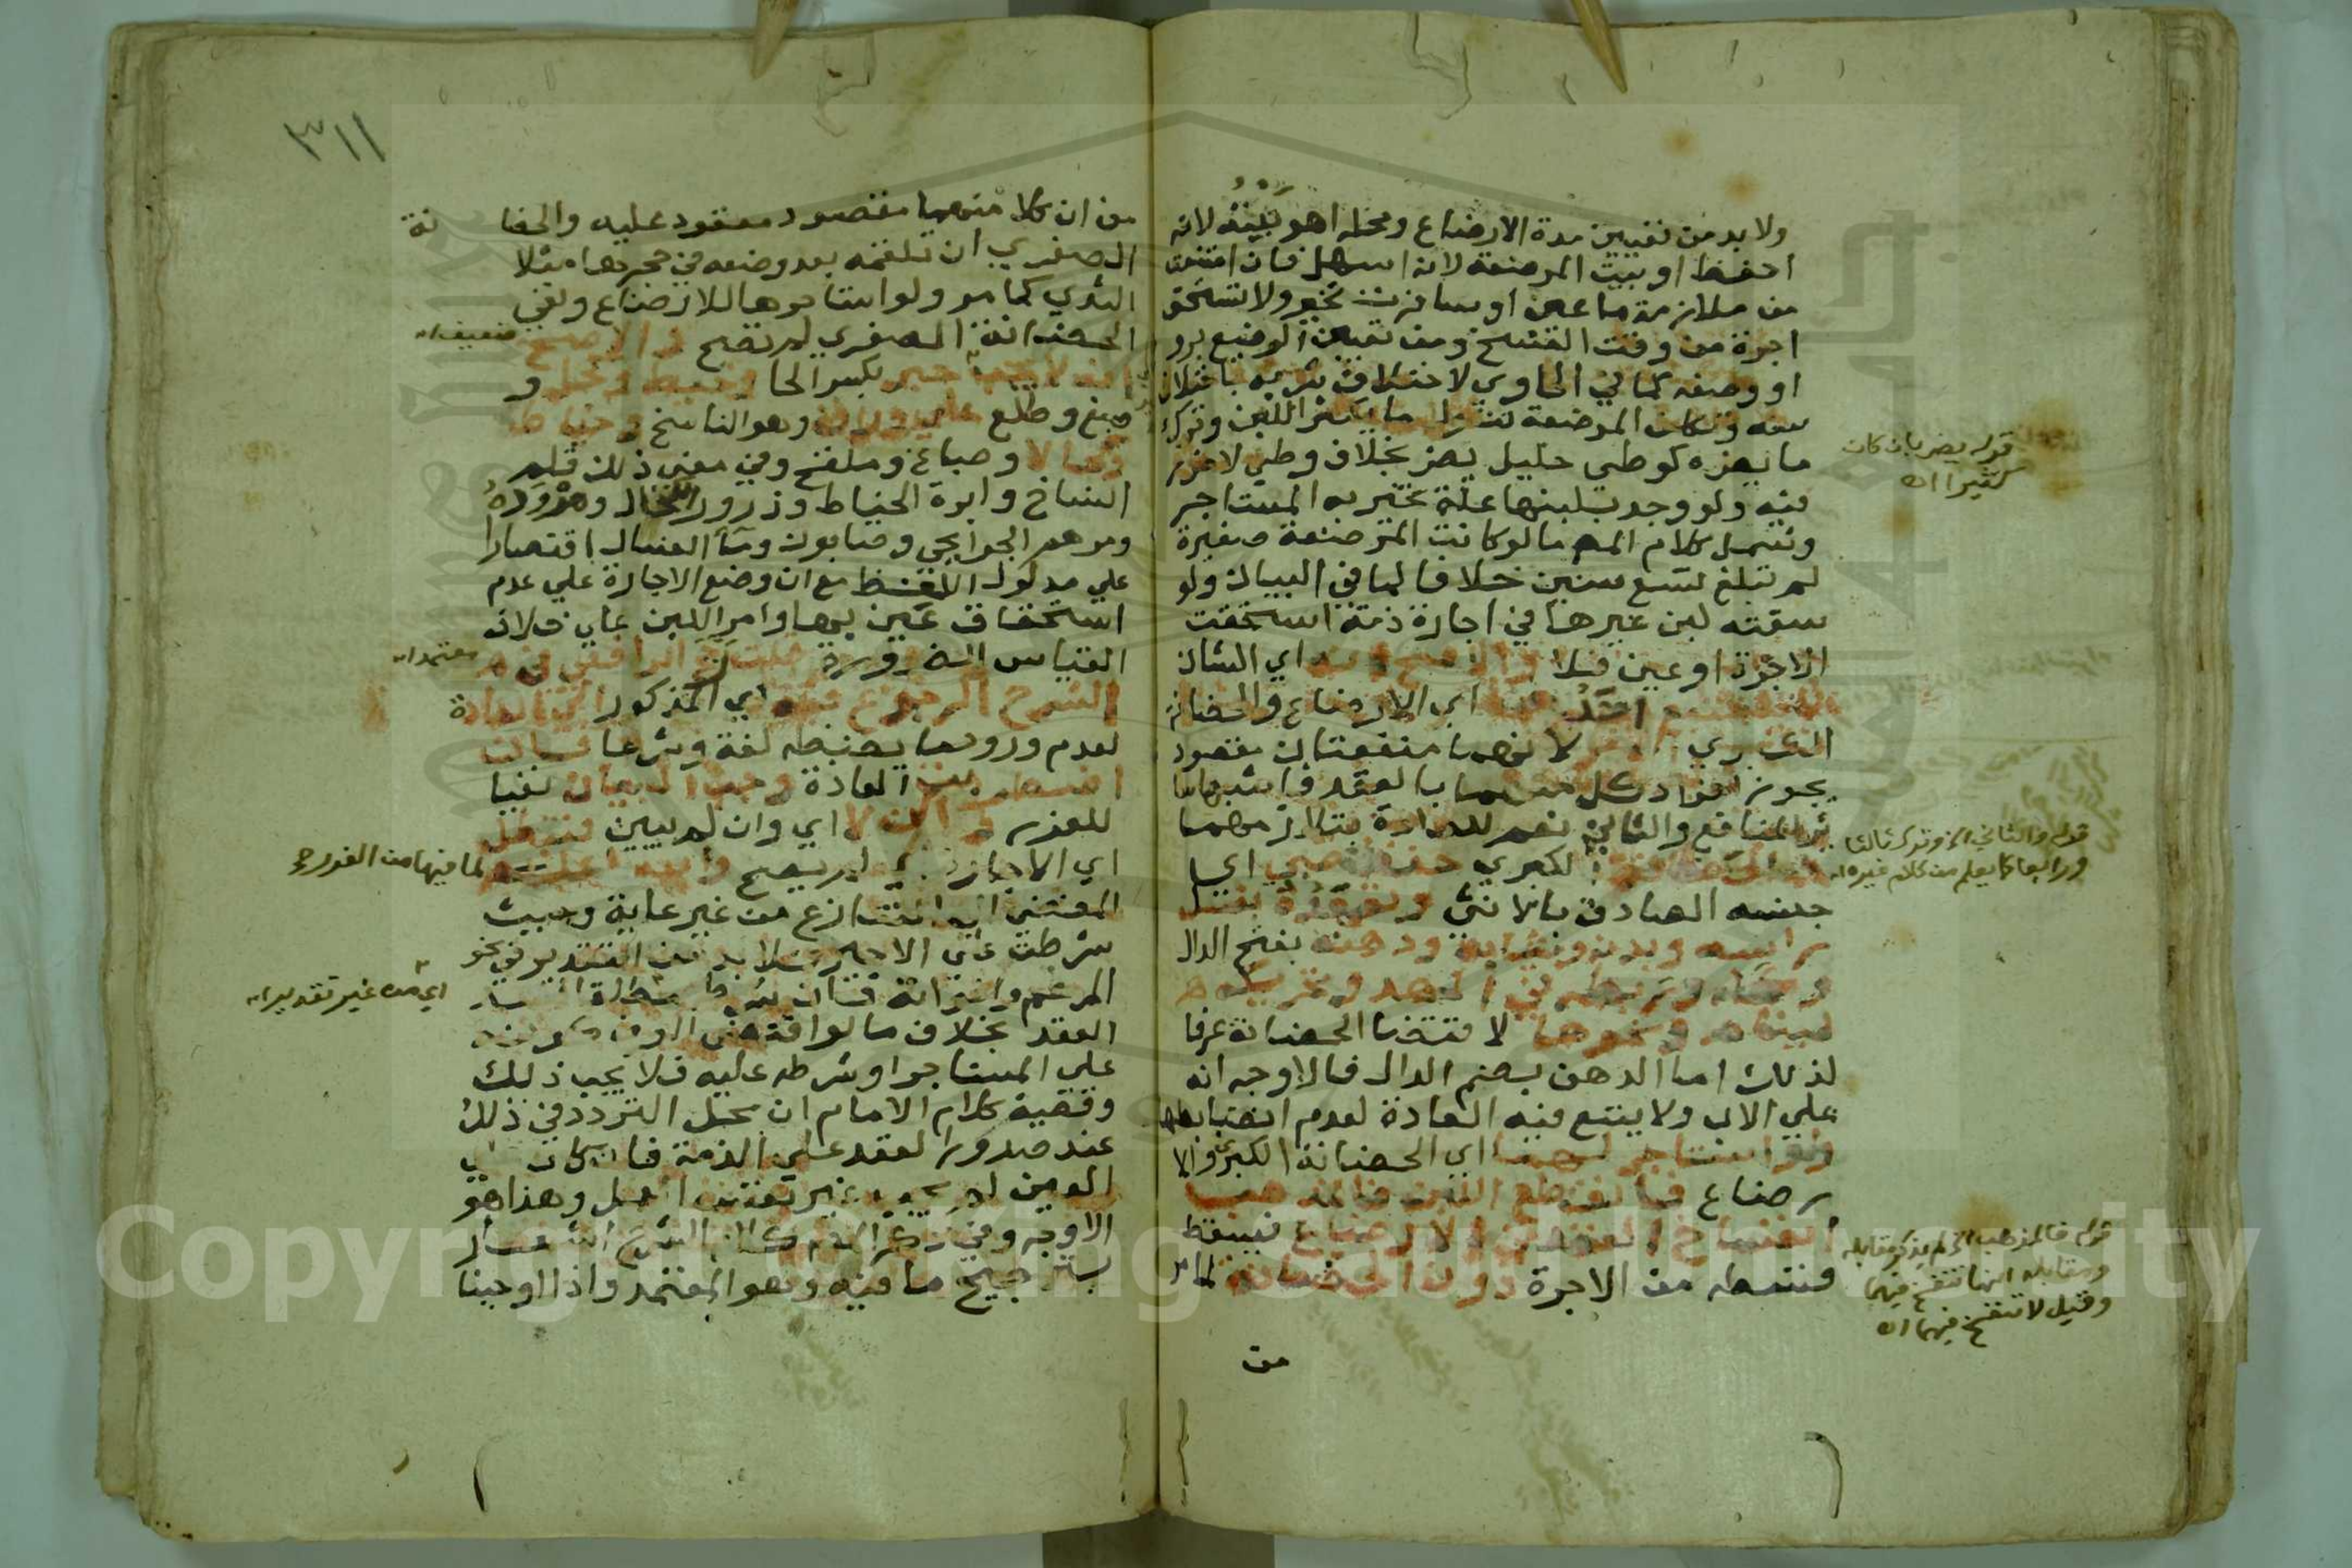 ولا بد من تعيين مدة الارضاع ومحله اهو بيته لانه
احفظ او بيت المرضعة لانه اسهل فان امتنعت
من ملازمة ما عين او سافرت تخير ولا تستحق
اجرة من وقت الفسخ ومن تعيين الرضيع برو
او وصفه كما في الحاوي لاختلاف شربه باختلاف
سنه وتكلف المرضعة تناول ما يكثر اللبن وترك
ما يضره كوطي حليل يضر بخلاف وطي لا ضرر
فيه ولو وجد بلبنها علة تخير به المستاجر
وشمل كلام المص ما لو كانت المرضعة صغيرة
لم تبلغ تسع سنين خلافا لما في البيان ولو
سقته لبن غيرها في اجارة ذمة استحقت
الاجرة او عين فلا والاصح انه اي الشان
اي الارضاع والحضانة
الكبري لانهما منفعتان مقصود
يجوز افراد كل منهما بالعقد فاشبها سا
ئر المنافع والثاني نعم للعادة بتلازمهما
والحضانة الكبري حفظ صبي اي
جنسه الصادق بالانثي وتعهده بغسل
راسه وبدنه وثيابه ودهنه بفتح الدال
وكحله وربطه في المهد وتحريكه
لينام ونحوها لاقتضا الحضانة عرفا
لذلك اما الدهن بضم الدال فالاوجه انه
علي الاب ولا يتبع فيه العادة لعدم انضباطها
ولو استاجر لهما اي الحضانة الكبري والا
رضاع فانقطع اللبن فالمذهب
انفساخ العقد في الارضاع فيسقط
قسطه من الاجرة دون الحضانة لما مر
من
قوله يضر بان كان
كثيرا اه
قوله والثاني الخ وترك ثالثا
ورابعا كما يعلم من كلام غيره اه
قوله فالمذهب الخ لم يذكر مقابله
ومقابله انها تنفسخ فيهما
وقيل لا تنفسخ فيهما اه
٣١١
من ان كلا منهما مقصود معقود عليه والحضا نة
الصغري ان تلقمه بعد وضعه في حجرها مثلا
الثدي كما مر ولو استاجرها للارضاع ونفي
الحضانة الصغري لم تصح والاصح
انه لا يجب حبر بكسر الحا وخيط وكحل و
صبغ وطلع علي وراق وهو الناسخ وخياط
وكحال وصباغ وملقح وفي معني ذلك قلم
النساخ وابرة الخياط وذرور الكحال ومروده
ومرهم الجرايحي وصابون وما الغسال اقتصارا
علي مدلول اللفظ مع ان وضع الاجارة علي عدم
استحقاق عين بها وامر اللبن علي خلاف
القياس للضرورة قلت صحح الرافعي في
الشرح الرجوع فيه اي المذكور الي العادة
لعدم ورود ما يضبطه لغة وشرعا فان
اضطربت العادة وجب البيان نفيا
للغرر والا اي وان لم يبين فتبطل
اي الاجارة اي لم تصح والله اعلم لما فيها من الغرر
المفضي الي التنازع من غير غاية وحيث
شرطت علي الاجير فلا بد من التقدير في نحو
المرهم واخواته فان شرط مطلقا فسد
العقد بخلاف ما لو اقتضي العرف كونه
علي المستاجر او شرطه عليه فلا يجب ذلك
وقضية كلام الامام ان محل التردد في ذلك
عند صدور العقد علي الذمة فان كان علي
العين لم يجب غير نفس العمل وهذا هو
الاوجه وفي
بترجيح ما فيه وهو المعتمد واذا اوجبنا
ضعيف اه
معتمد اه
اي من غير تقدير اه